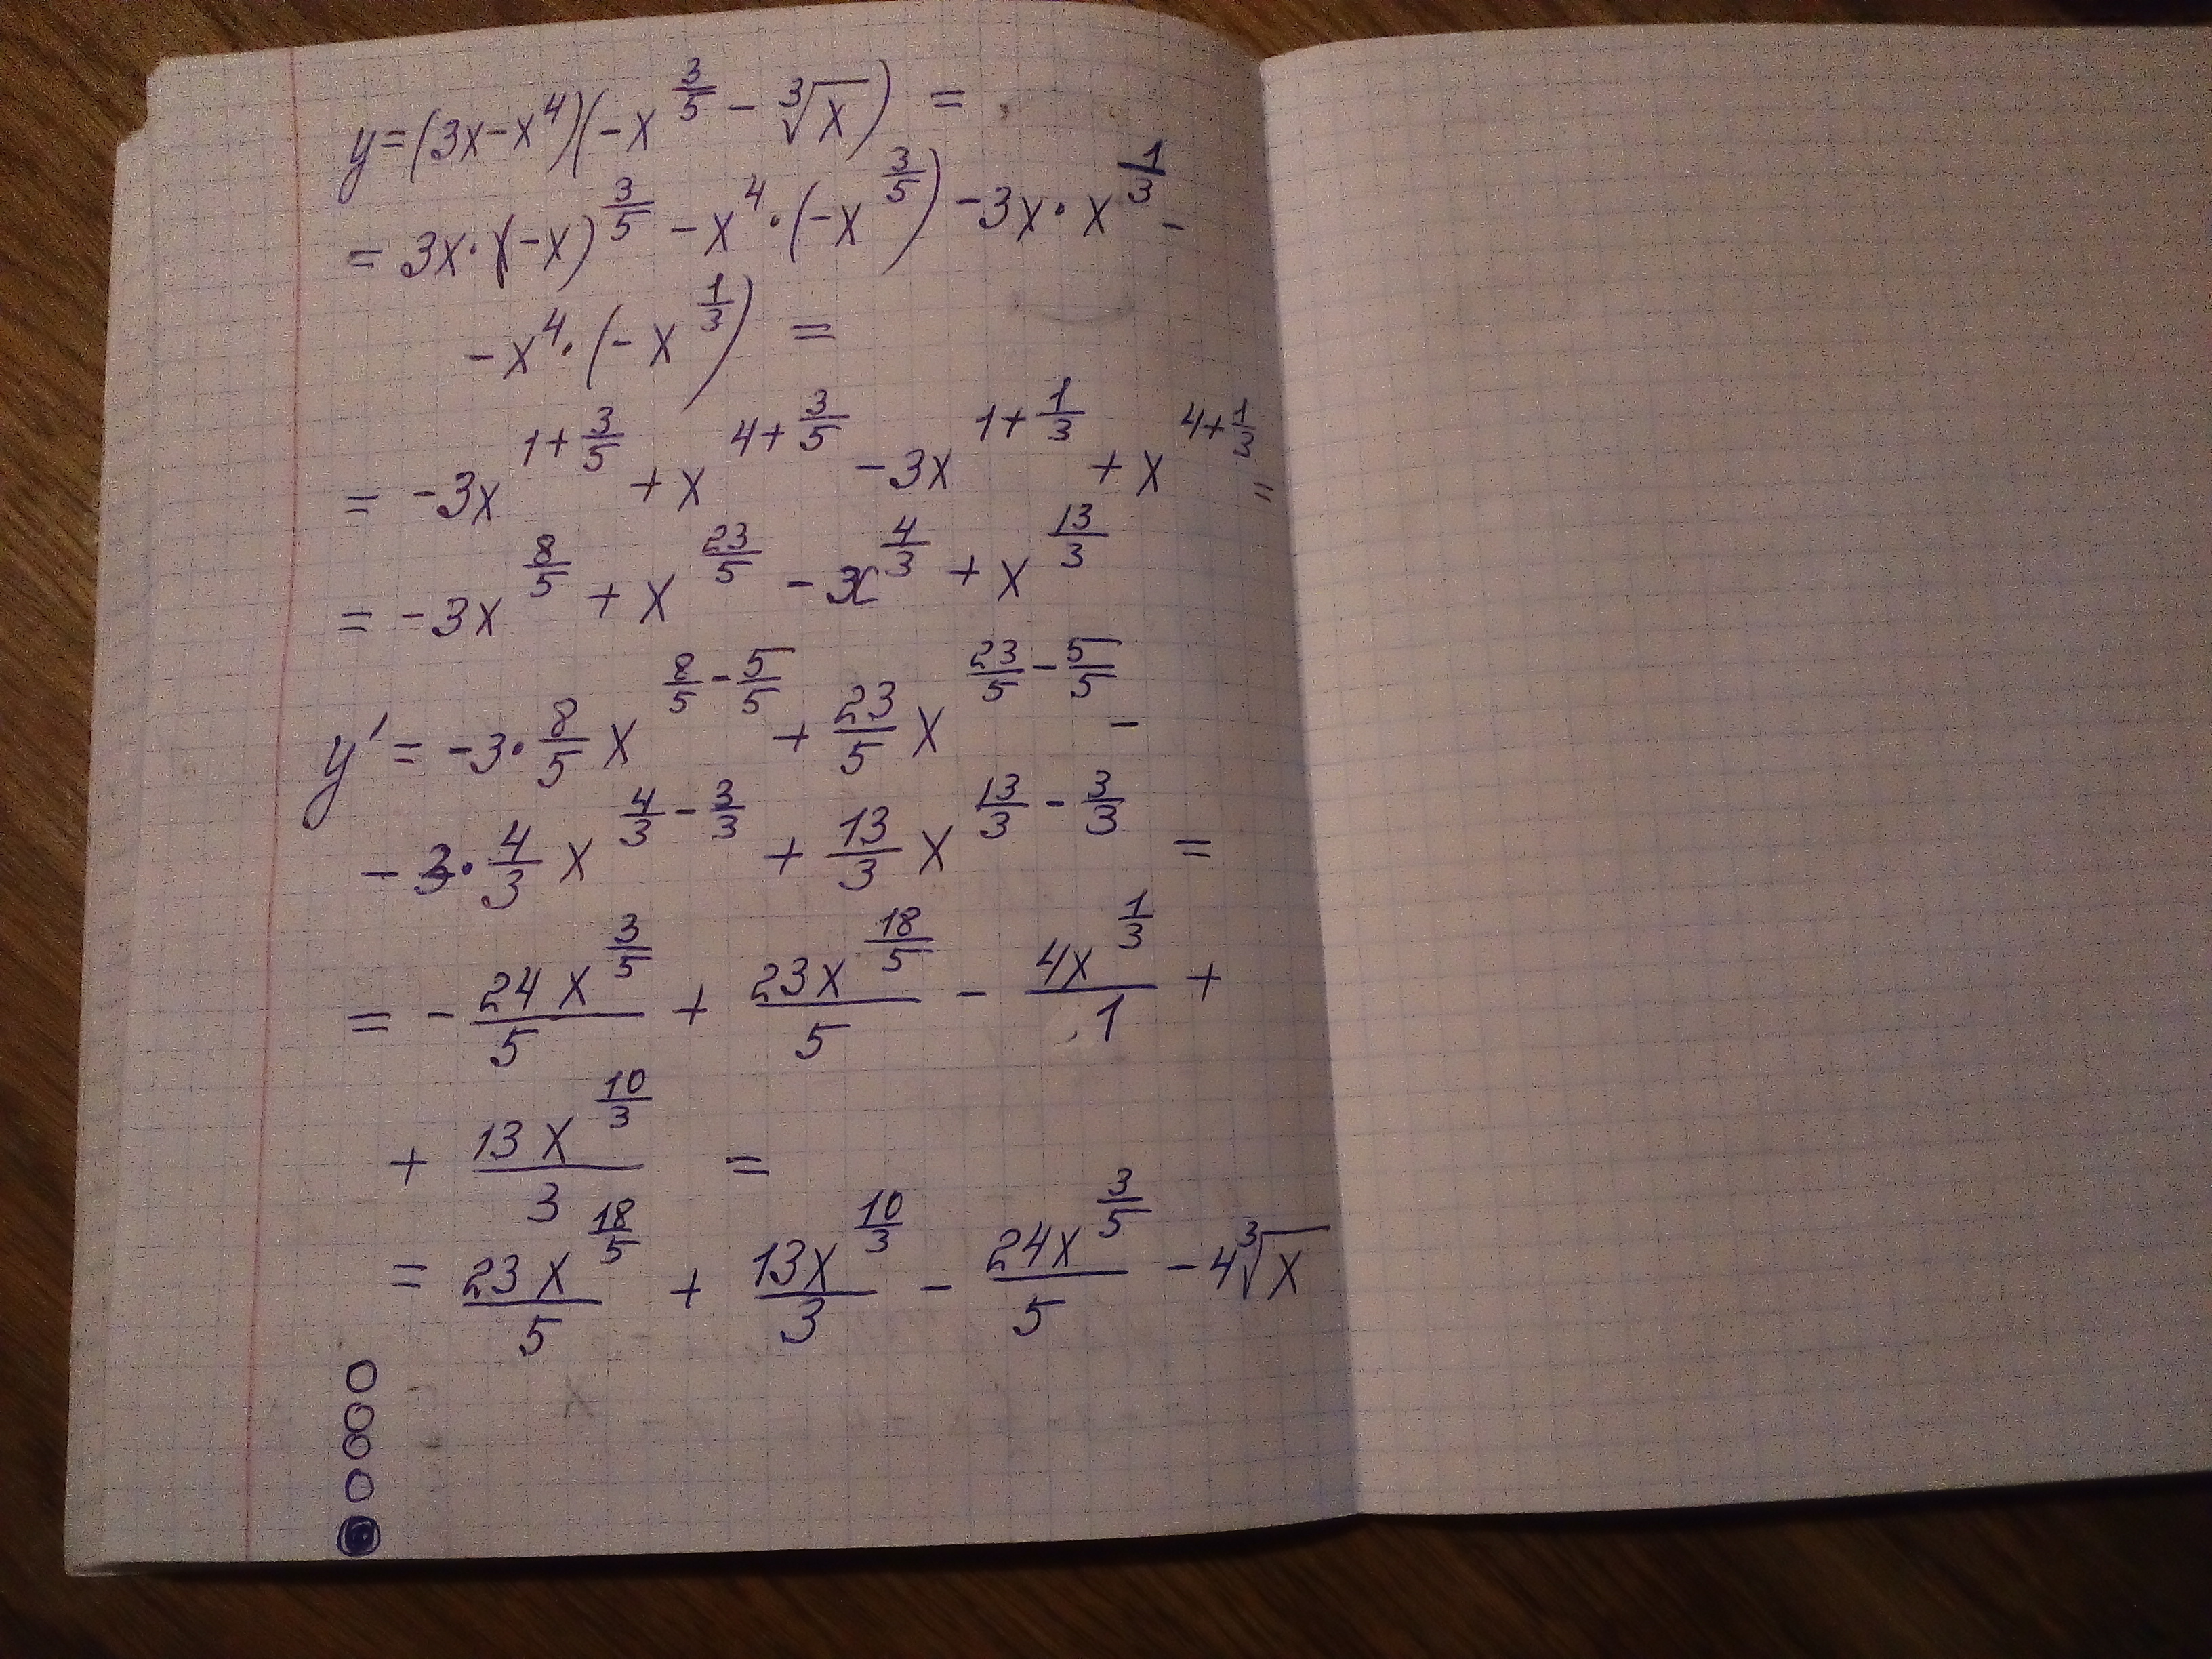 y=(3x-x^4)(-x^{3/5} - ∛x) =
= 3x·(-x)^{3/5} - x^4·(-x^{3/5}) - 3x·x^{1/3} -
- x^4·(-x^{1/3}) =
= -3x^{1+3/5} + x^{4+3/5} - 3x^{1+1/3} + x^{4+1/3} =
= -3x^{8/5} + x^{23/5} - 3x^{4/3} + x^{13/3}
y' = -3·8/5 x^{8/5-5/5} + 23/5 x^{23/5-5/5} -
- 3·4/3 x^{4/3-3/3} + 13/3 x^{13/3-3/3} =
= - 24x^{3/5}/5 + 23x^{18/5}/5 - 4x^{1/3}/1 +
+ 13x^{10/3}/3 =
= 23x^{18/5}/5 + 13x^{10/3}/3 - 24x^{3/5}/5 - 4∛x